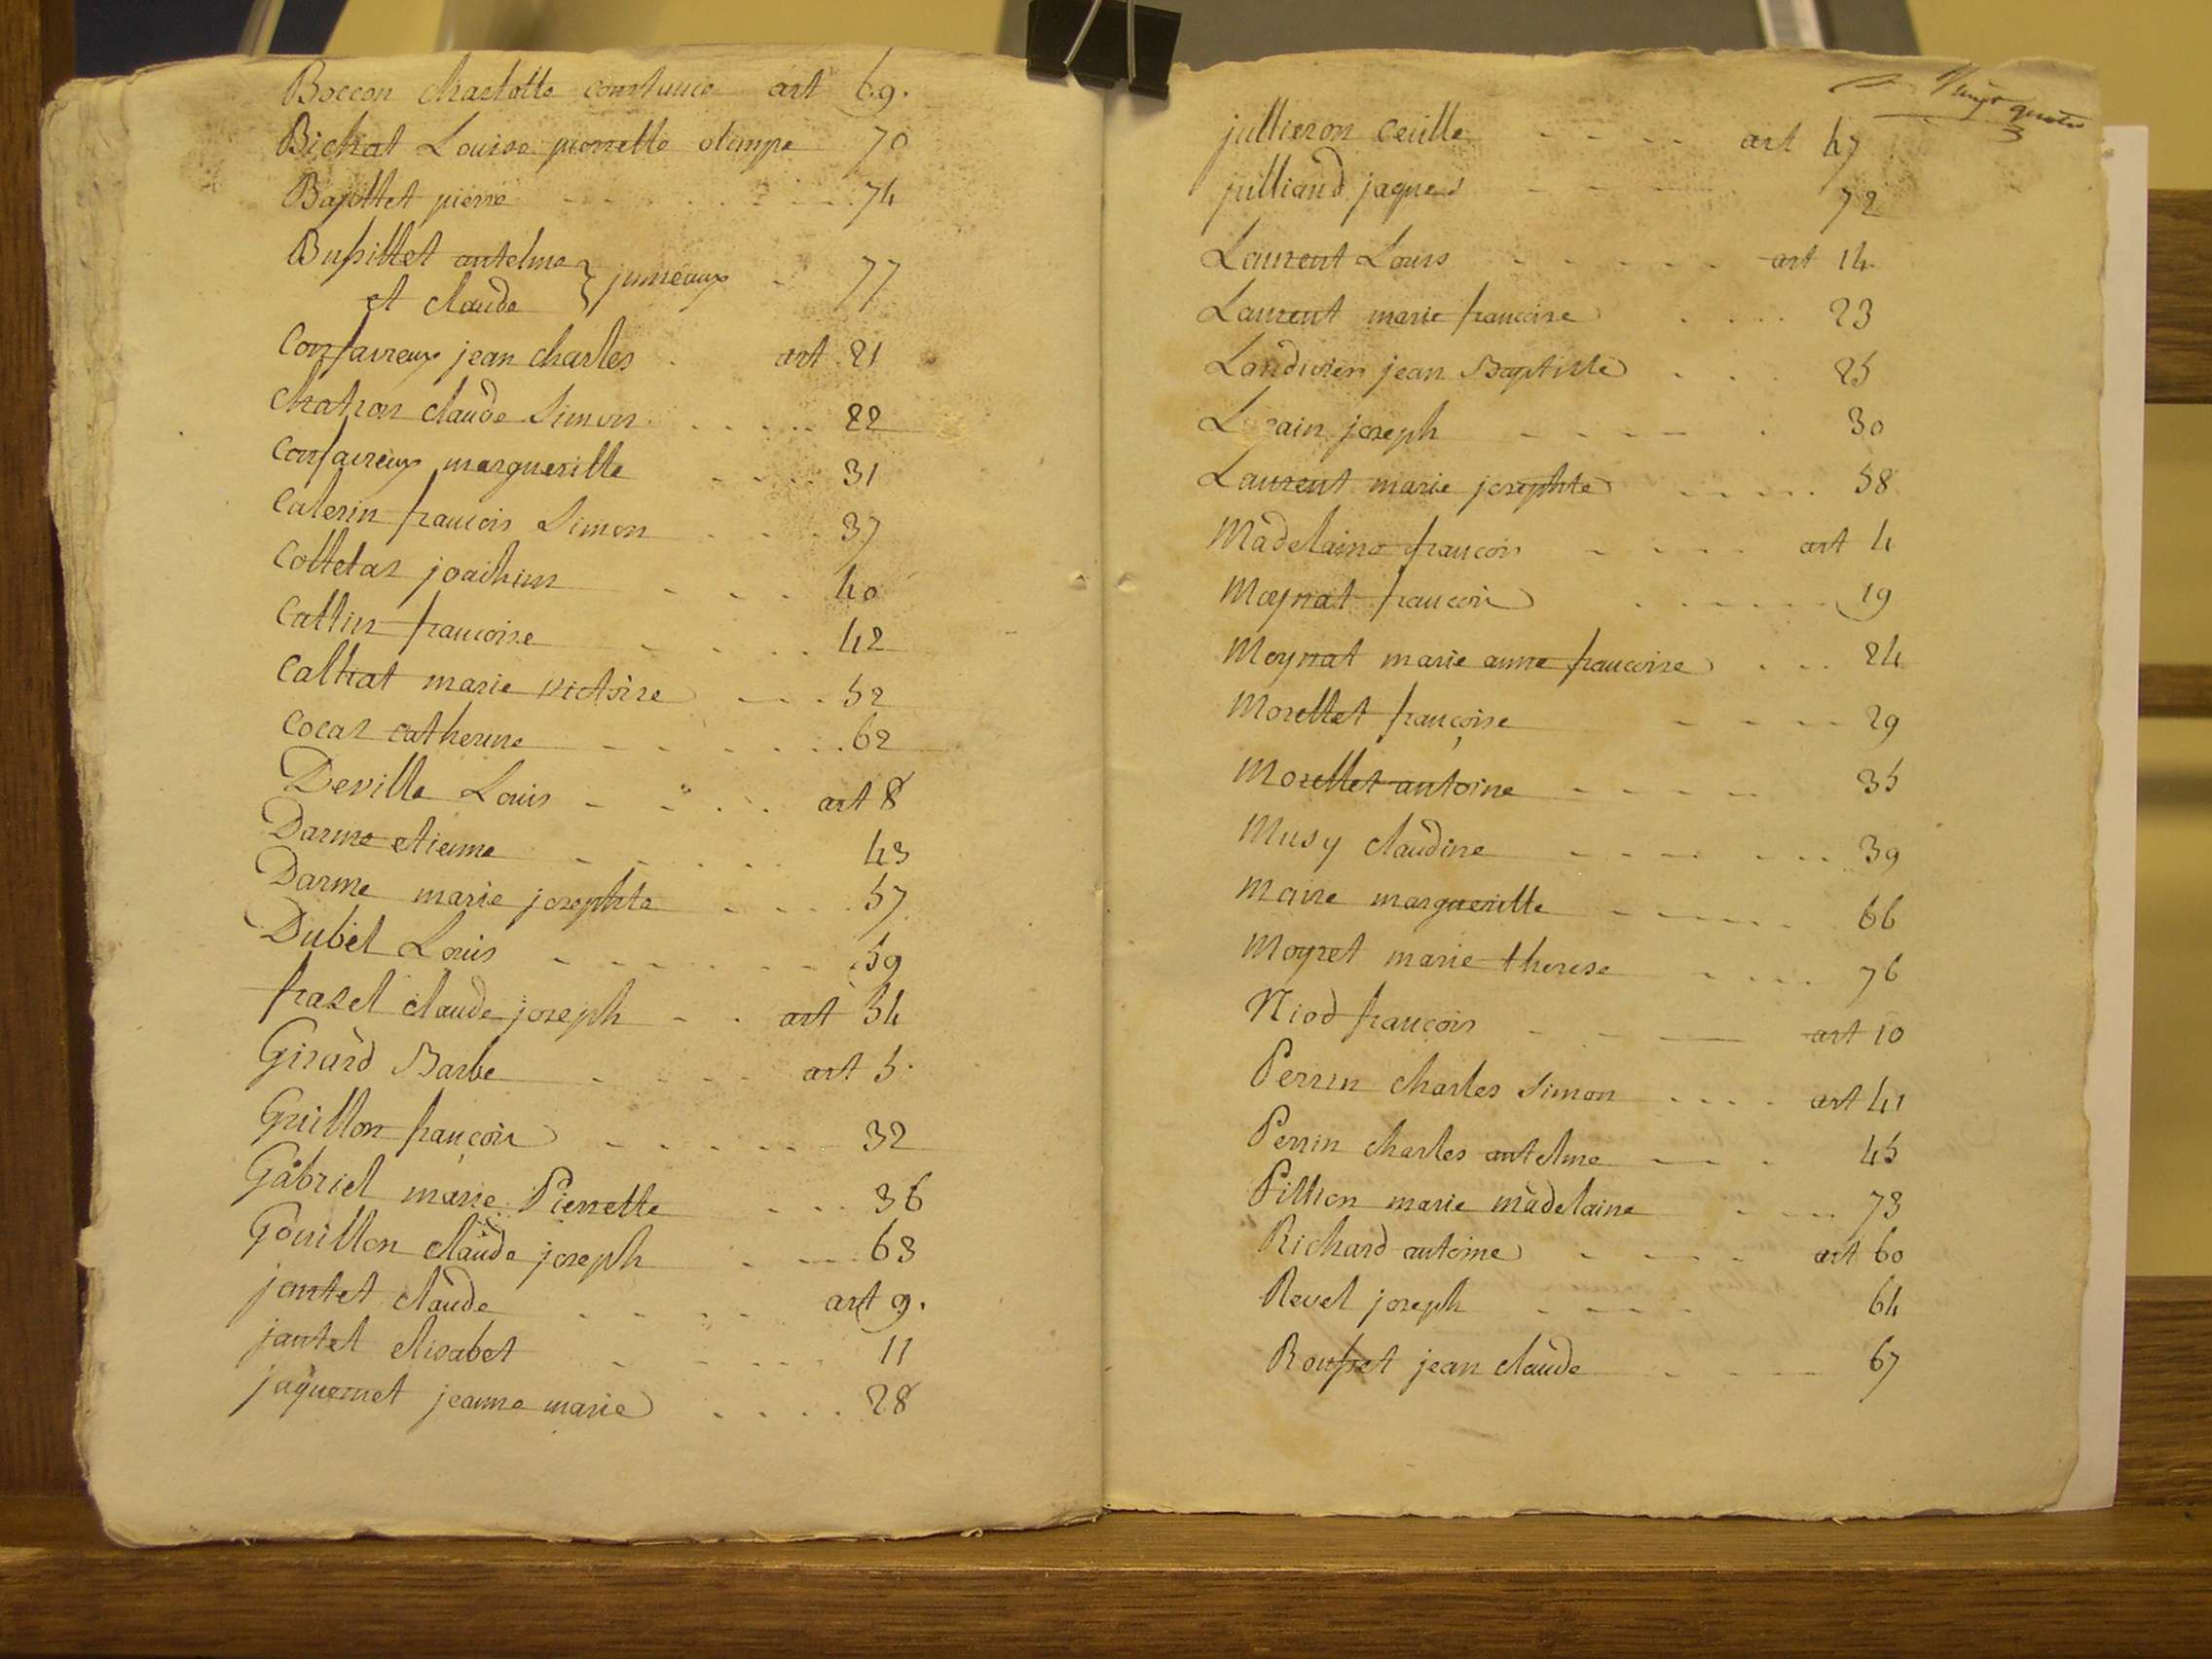 Boccon charlotte constance art 69.
Bichat Louise pierrette olimpe 70
Bapittet pierre 74
Bussillet antelme
et claude } jumeaux 77
Confavreux jean charles art 21
Chatron claude Simon 22
Confavreux margueritte 31
Caterin francois Simon 37
Colletas joachim 40
Cattin francoise 42
Caltrat marie victoire 52
Cocas catherine 62
Deville Louis art 8
Darme etienne 43
Darme marie josephte 57
Dubet Louis 59
frasel claude joseph art 54
Girard Barbe art 5
Guillon françois 32
Gabriel marie Pierrette 36
Gouillon claude joseph 63
jantet claude art 9.
jantet elisabet 11
jaquemet jeanne marie 28
Vingt quatre
jullieron art 47
julliand jaques 72
Laurent Louis art 14
Laurent marie francoise 23
jean Baptiste 25
joseph 30
Laurent marie josephte 58
Madelaine francois art 4
Moynat francois 19
Moynat marie anne francoise 24
Morellet françoise 29
Morellet antoine 35
Musy claudine 39
Maire margueritte 66
Moyret marie therese 76
Niod francois art 10
Perrin charles Simon art 41
Perrin charles antelme 45
Pillion marie madelaine 73
Richard antoine art 60
Revel joseph 64
Rousset jean claude 67